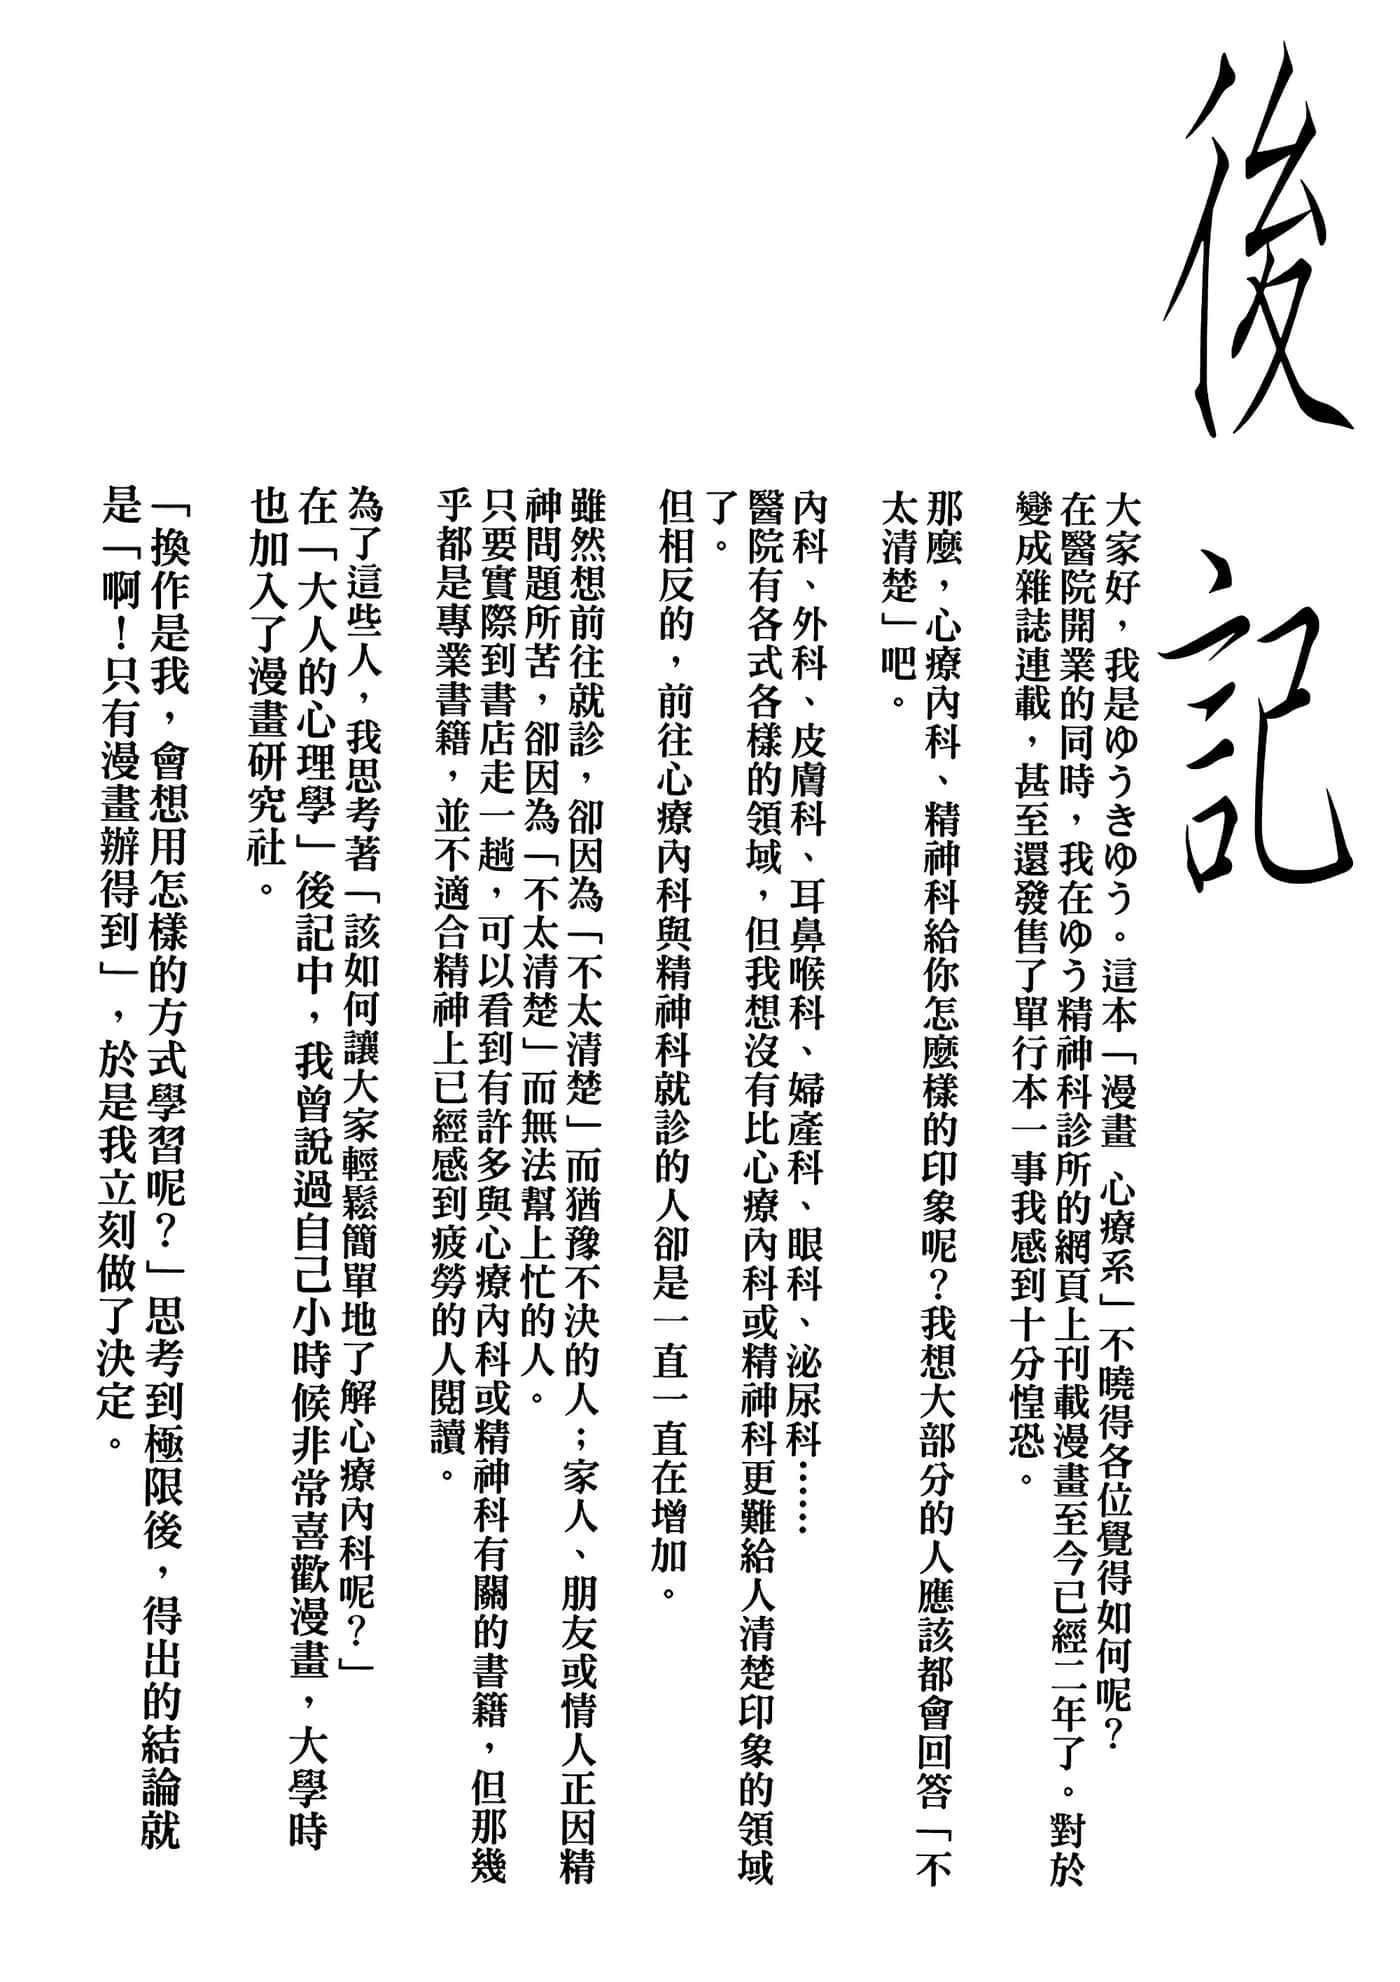 後記
大家好，我是ゆうきゆう。這本「漫畫 心療系」不曉得各位覺得如何呢？
在醫院開業的同時，我在ゆう精神科診所的網頁上刊載漫畫至今已經二年了。對於
變成雜誌連載，甚至還發售了單行本一事我感到十分惶恐。
那麼，心療內科、精神科給你怎麼樣的印象呢？我想大部分的人應該都會回答「不
太清楚」吧。
內科、外科、皮膚科、耳鼻喉科、婦產科、眼科、泌尿科……
醫院有各式各樣的領域，但我想沒有比心療內科或精神科更難給人清楚印象的領域
了。
但相反的，前往心療內科與精神科就診的人卻是一直一直在增加。
雖然想前往就診，卻因為「不太清楚」而猶豫不決的人；家人、朋友或情人正因精
神問題所苦，卻因為「不太清楚」而無法幫上忙的人。
只要實際到書店走一趟，可以看到有許多與心療內科或精神科有關的書籍，但那幾
乎都是專業書籍，並不適合精神上已經感到疲勞的人閱讀。
為了這些人，我思考著「該如何讓大家輕鬆簡單地了解心療內科呢？」
在「大人的心理學」後記中，我曾說過自己小時候非常喜歡漫畫，大學時
也加入了漫畫研究社。
「換作是我，會想用怎樣的方式學習呢？」思考到極限後，得出的結論就
是「啊！只有漫畫辦得到」，於是我立刻做了決定。